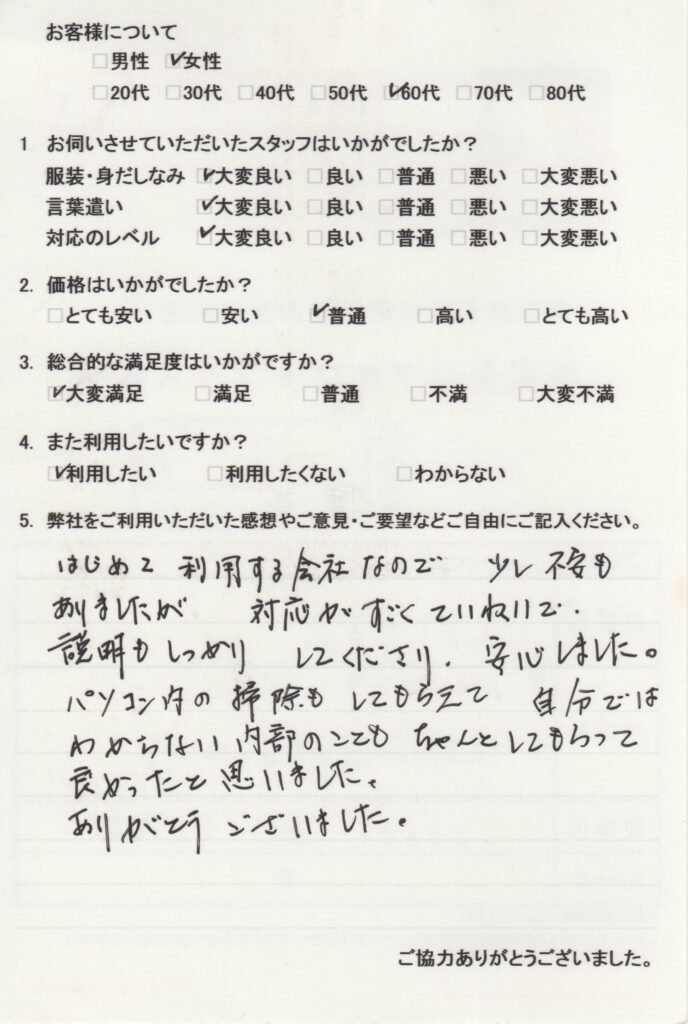 お客様について
□男性 ☑女性
□20代 □30代 □40代 □50代 ☑60代 □70代 □80代
1 お伺いさせていただいたスタッフはいかがでしたか？
服装・身だしなみ ☑大変良い □良い □普通 □悪い □大変悪い
言葉遣い ☑大変良い □良い □普通 □悪い □大変悪い
対応のレベル ☑大変良い □良い □普通 □悪い □大変悪い
2. 価格はいかがでしたか？
□とても安い □安い ☑普通 □高い □とても高い
3. 総合的な満足度はいかがですか？
☑大変満足 □満足 □普通 □不満 □大変不満
4. また利用したいですか？
☑利用したい □利用したくない □わからない
5. 弊社をご利用いただいた感想やご意見・ご要望などご自由にご記入ください。
はじめて 利用する会社なので 少し不安も
ありましたが 対応がすごくていねいで、
説明もしっかり してくださり、安心しました。
パソコン内の掃除も してもらえて 自分では
わからない内部のことも ちゃんとしてもらって
良かったと思いました。
ありがとう ございました。
ご協力ありがとうございました。